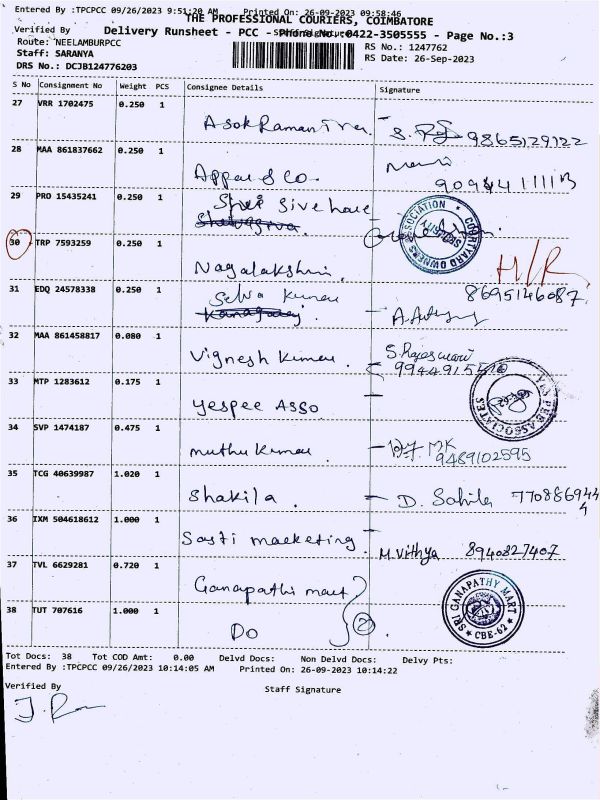 Entered By :TPCPCC 09/26/2023 9:51:20 AM Printed On: 26-09-2023 09:58:46
THE PROFESSIONAL COURIERS, COIMBATORE
Verified By Staff Signature
Delivery Runsheet - PCC - Phone No.:0422-3505555 - Page No.:3
Route: NEELAMBURPCC
RS No.: 1247762
Staff: SARANYA
RS Date: 26-Sep-2023
DRS No.: DCJB124776203
S No Consignment No Weight PCS Consignee Details Signature
27 VRR 1702475 0.250 1
9865129122
28 MAA 861837662 0.250 1
Appau & Co.
29 PRO 15435241 0.250 1
COURTYARD OWNERS ASSOCIATION
30 TRP 7593259 0.250 1
Nagalakshmi. H/R
31 EDQ 24578338 0.250 1 8695146087
Selva Kumar
32 MAA 861458817 0.080 1
Vignesh Kumar. S. Rajeswari
33 MTP 1283612 0.175 1
Yespee Asso
YES PEE ASSOCIATES
34 SVP 1474187 0.475 1
muthu Kumar MK
9489102595
35 TCG 40639987 1.020 1
Shakila. 7708869444
36 IXM 504618612 1.000 1
Sasti marketing. M. Vithya 8940827407
37 TVL 6629281 0.720 1
Ganapathi mart
SRI GANAPATHY MART
* CBE-62 *
38 TUT 707616 1.000 1
Do 2
Tot Docs: 38 Tot COD Amt: 0.00 Delvd Docs: Non Delvd Docs: Delvy Pts:
Entered By :TPCPCC 09/26/2023 10:14:05 AM Printed On: 26-09-2023 10:14:22
Verified By Staff Signature